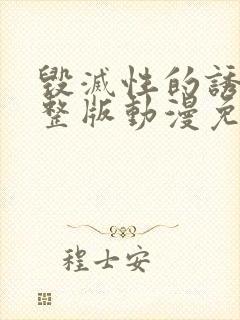 毀滅性的誘
整版動漫免
程士安